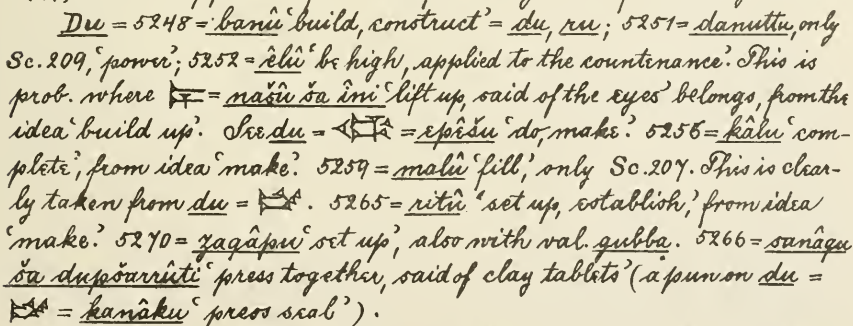 Du = 5248 = banû ‘build, construct’ = du, ru; 5251 = danuttu, only
Sc. 209, ‘power’; 5252 = êlû ‘be high, applied to the countenance’. This is
prob. where = našû ša îni ‘lift up, said of the eyes’ belongs, from the
idea ‘build up’. See du = = epêšu ‘do, make’. 5256 = kâlu ‘com-
plete’, from idea ‘make’. 5259 = malû ‘fill’, only Sc. 207. This is clear-
ly taken from du = . 5265 = ritû ‘set up, establish’, from idea
‘make’. 5270 = zaqâpu ‘set up’, also with val. gubba. 5266 = sanâqu
ša dupšarrûti ‘press together, said of clay tablets’ (a pun on du =
= kanâku ‘press seal’).